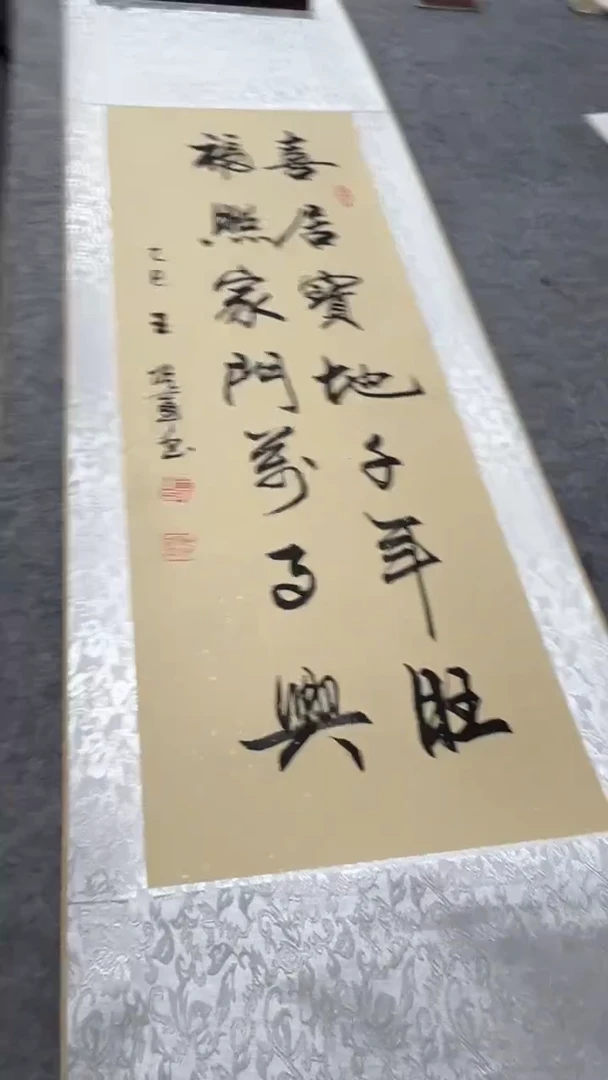 喜居寶地千年旺
福照家門萬事興
乙巳 王